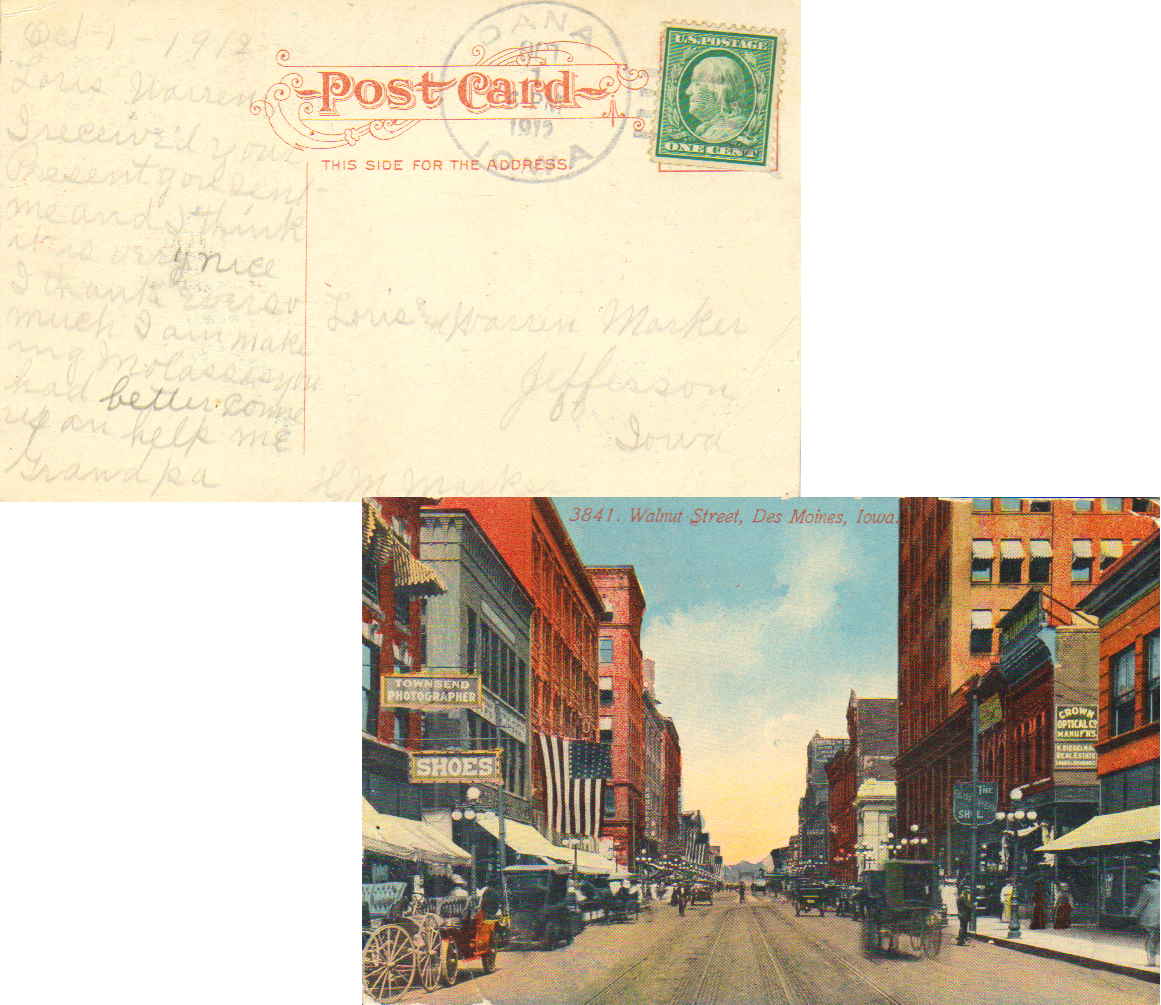 Oct 1 - 1912
Loris Warren
I receiv'd your
Present you sent
me and I think
it is very nice
I thank ever so
much I am make
ing Molasses you
had better come
up an help me
Grandpa
H M Marker
Post Card
THIS SIDE FOR THE ADDRESS.
DANA
OCT
1
1912
IOWA
U.S. POSTAGE
ONE CENT
Loris & Warren Marker
Jefferson
Iowa
3841. Walnut Street, Des Moines, Iowa.
TOWNSEND
PHOTOGRAPHER
SHOES
CROWN
OPTICAL CO
MANUF'RS.
REAL ESTATE
THE